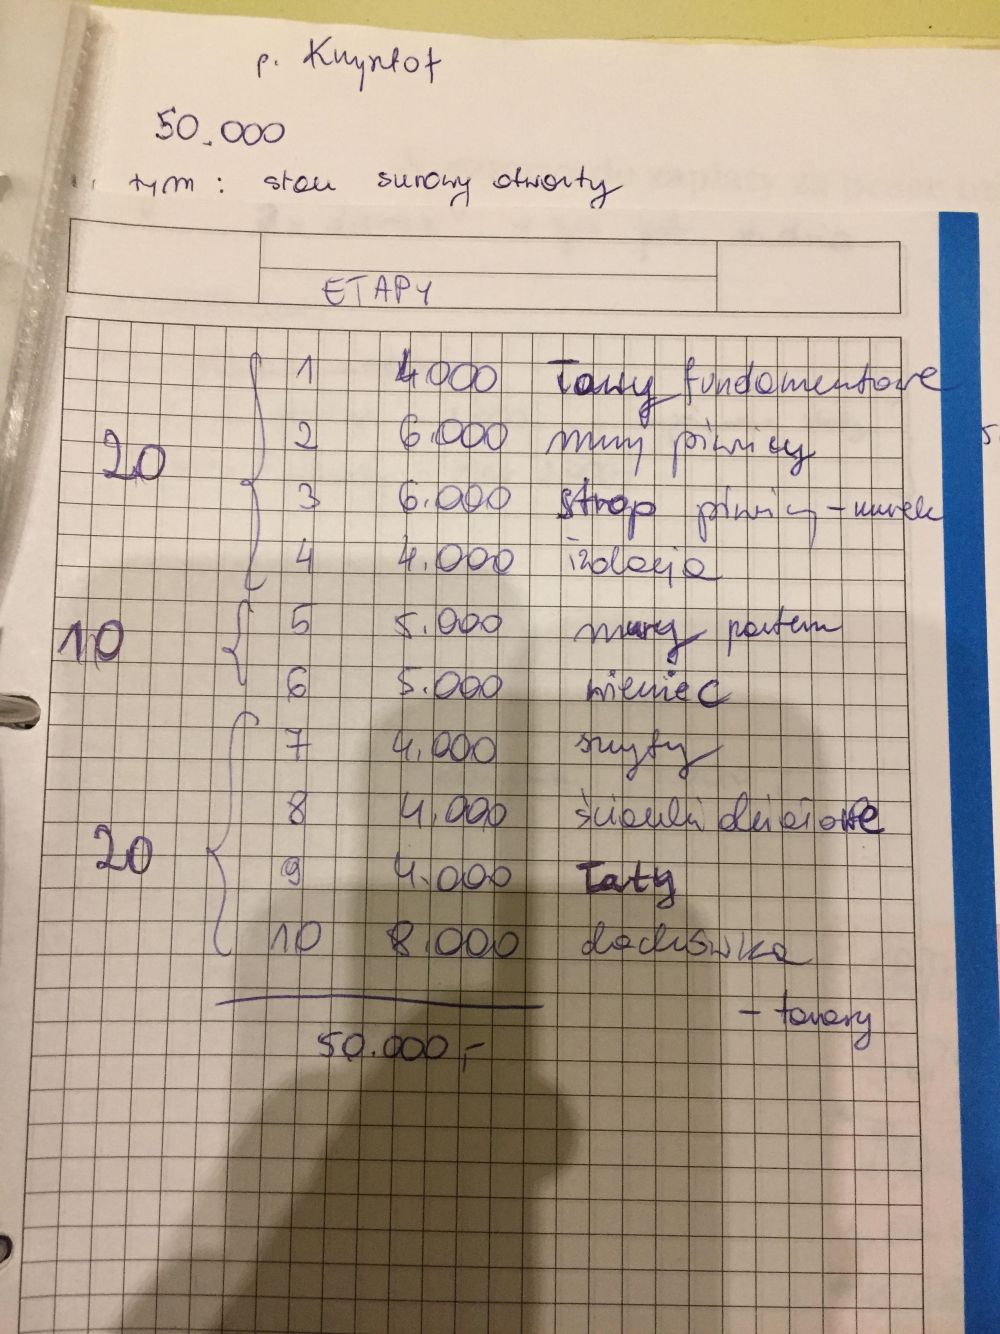 p. Krzysztof
50.000
tym : stan surowy otwarty
ETAPY
1 4.000 Ławy fundamentowe
2 6.000 mury piwnicy
3 6.000 strop piwnicy - murek
20
4 4.000 izolacja
5 5.000 mury parteru
10
6 5.000 wieniec
7 4.000 szczyty
8 4.000 ścianki działowe
20
9 4.000 Łaty
10 8.000 dachówka
- tarasy
50.000,-